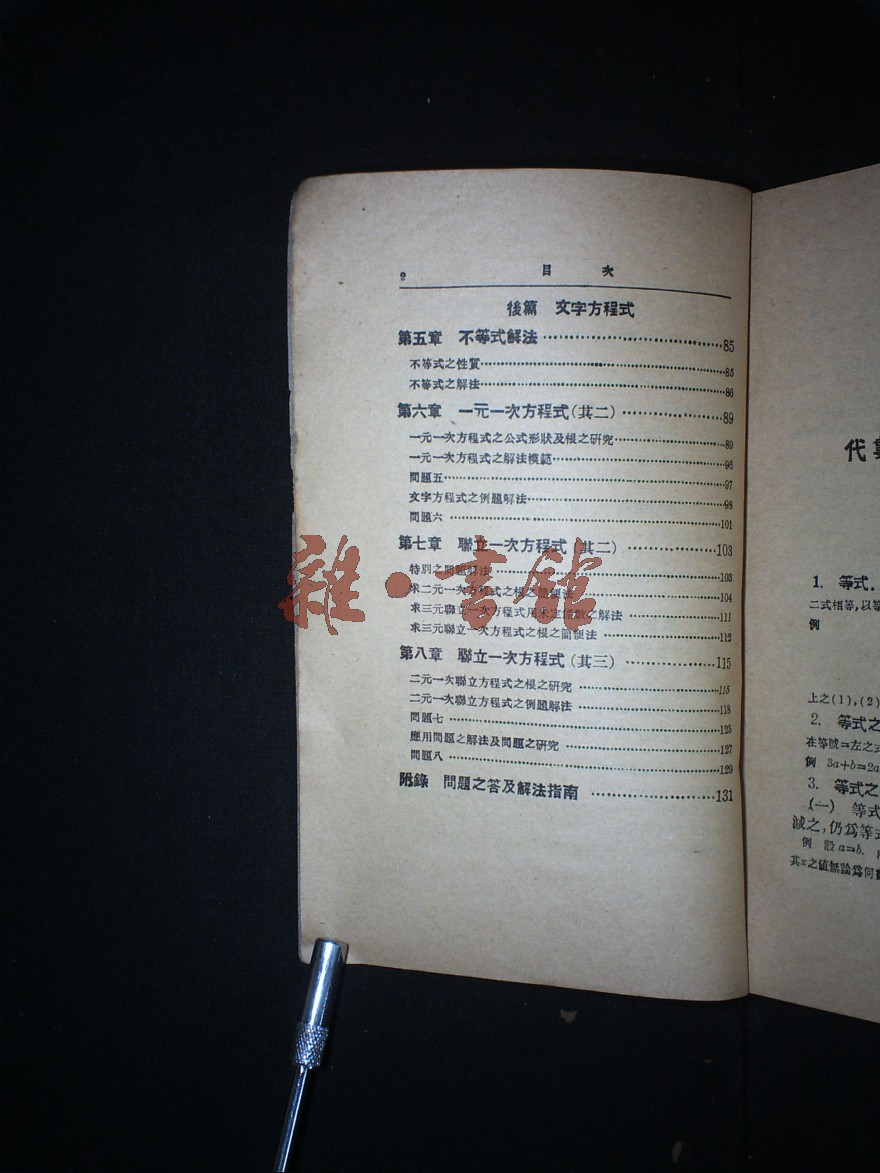 2 目次
後篇 文字方程式
第五章 不等式解法 85
不等式之性質 85
不等式之解法 86
第六章 一元一次方程式(其二) 89
一元一次方程式之公式形狀及根之研究 89
一元一次方程式之解法模範 96
問題五 97
文字方程式之例題解法 98
問題六 101
第七章 聯立一次方程式(其二) 103
特別之問題解法 103
求二元一次方程式之根之簡便法 104
求三元聯立一次方程式用未定係數之解法 111
求三元聯立一次方程式之根之簡便法 112
第八章 聯立一次方程式(其三) 115
二元一次聯立方程式之根之研究 115
二元一次聯立方程式之例題解法 118
問題七 125
應用問題之解法及問題之研究 127
問題八 129
附錄 問題之答及解法指南 131
雜·書館
代
1. 等式.
二式相等,以等
例
上之(1),(2)
2. 等式之
在等號=左之式
例 3a+b=2a
3. 等式之
(一) 等式
減之,仍爲等式
例 設a=b.
其x之值無論爲何